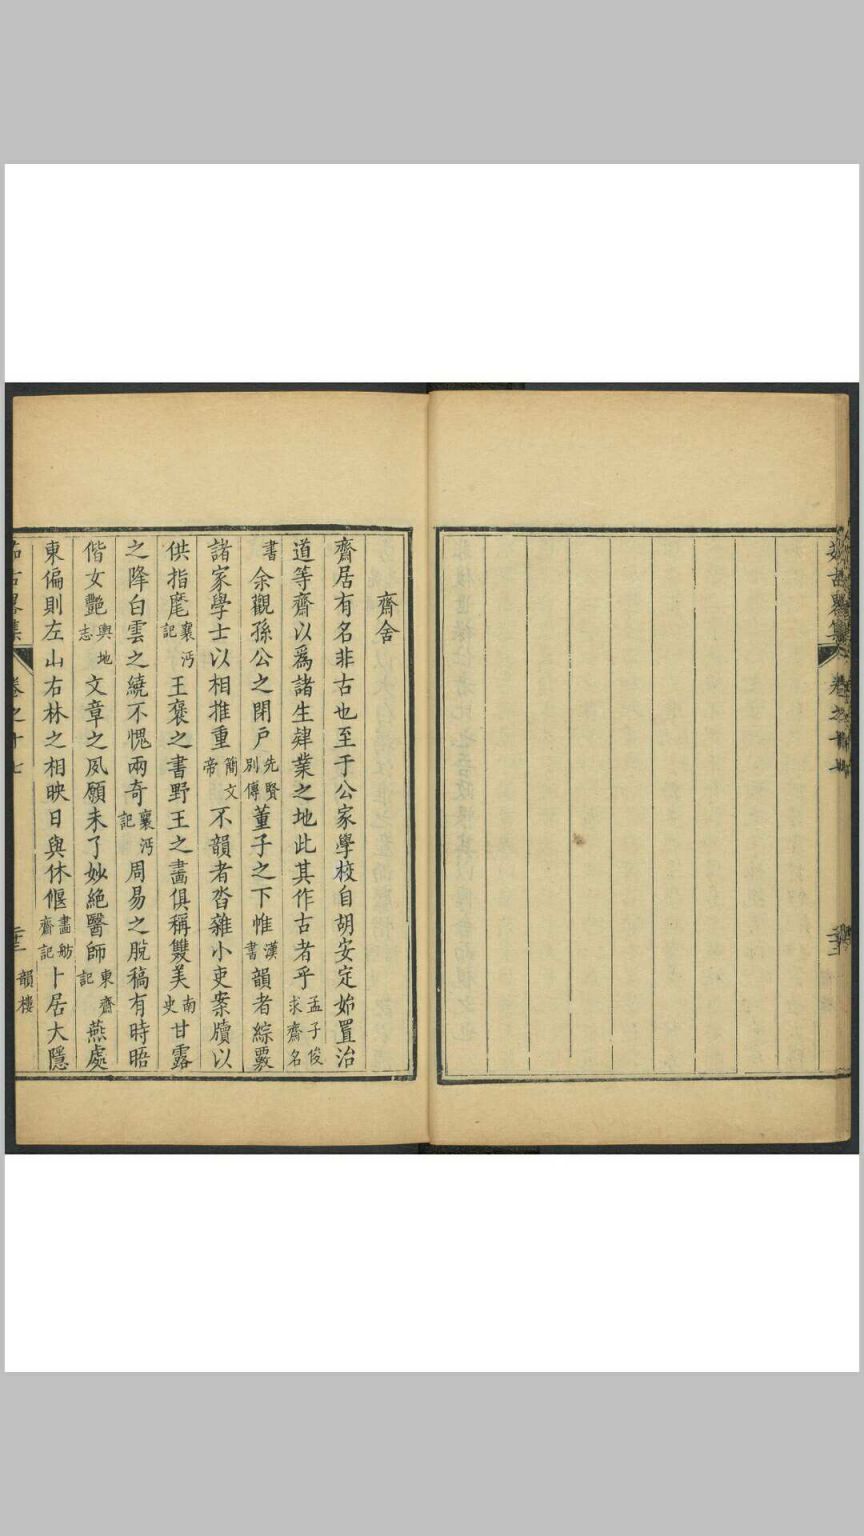 茹古畧集 卷之十七
齋舍
齋居有名非古也至于公家學校自胡安定始置治
道等齋以爲諸生肄業之地此其作古者乎孟子俊求齋名
書余觀孫公之閉戶先賢別傳董子之下帷漢書韻者綜覈
諸家學士以相推重簡文帝不韻者沓雜小吏案牘以
供指麾襄沔記王褒之書野王之畵俱稱雙美南史甘露
之降白雲之繞不愧兩奇襄沔記周易之脫稿有時晤
偕女艷輿地志文章之夙願未了妙絕醫師東齋記燕處
東偏則左山右林之相映日與休偃畵舫齋記卜居大隱
茹古畧集 卷之十七 二十三 韻樓